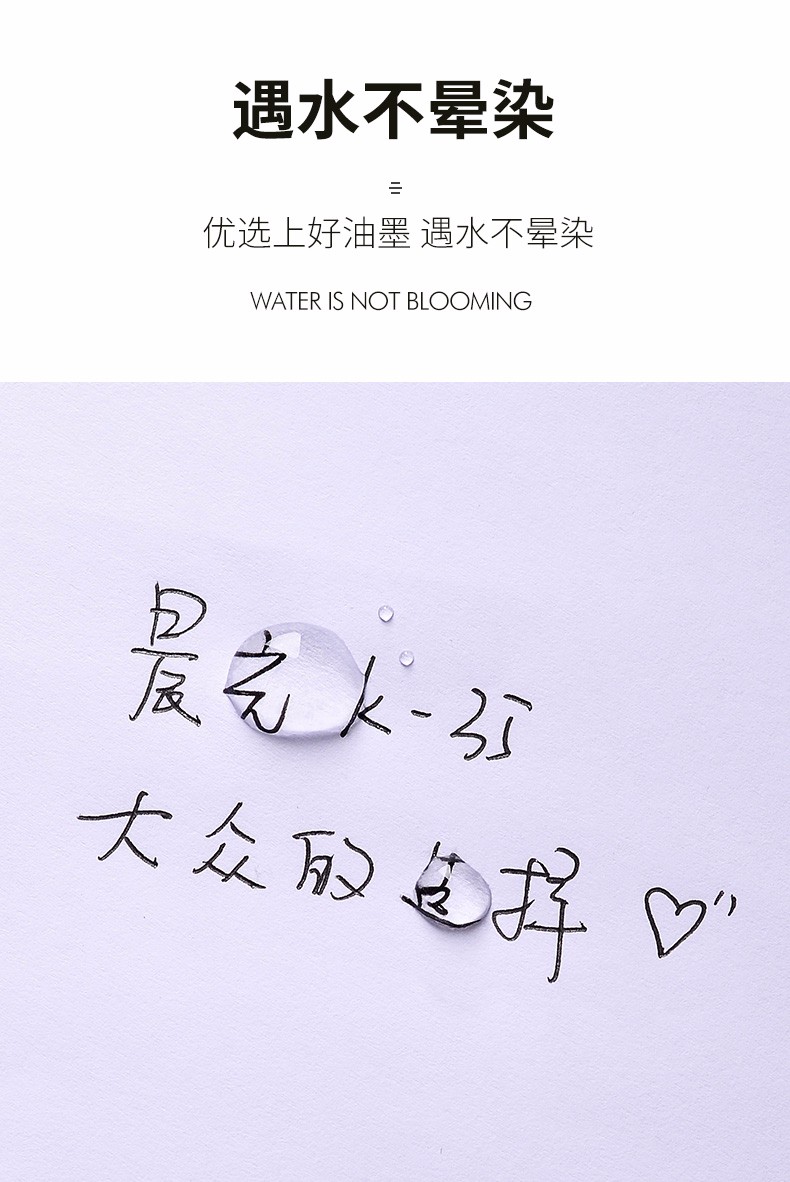 遇水不晕染
优选上好油墨 遇水不晕染
WATER IS NOT BLOOMING
晨光 K-35
大众的选择